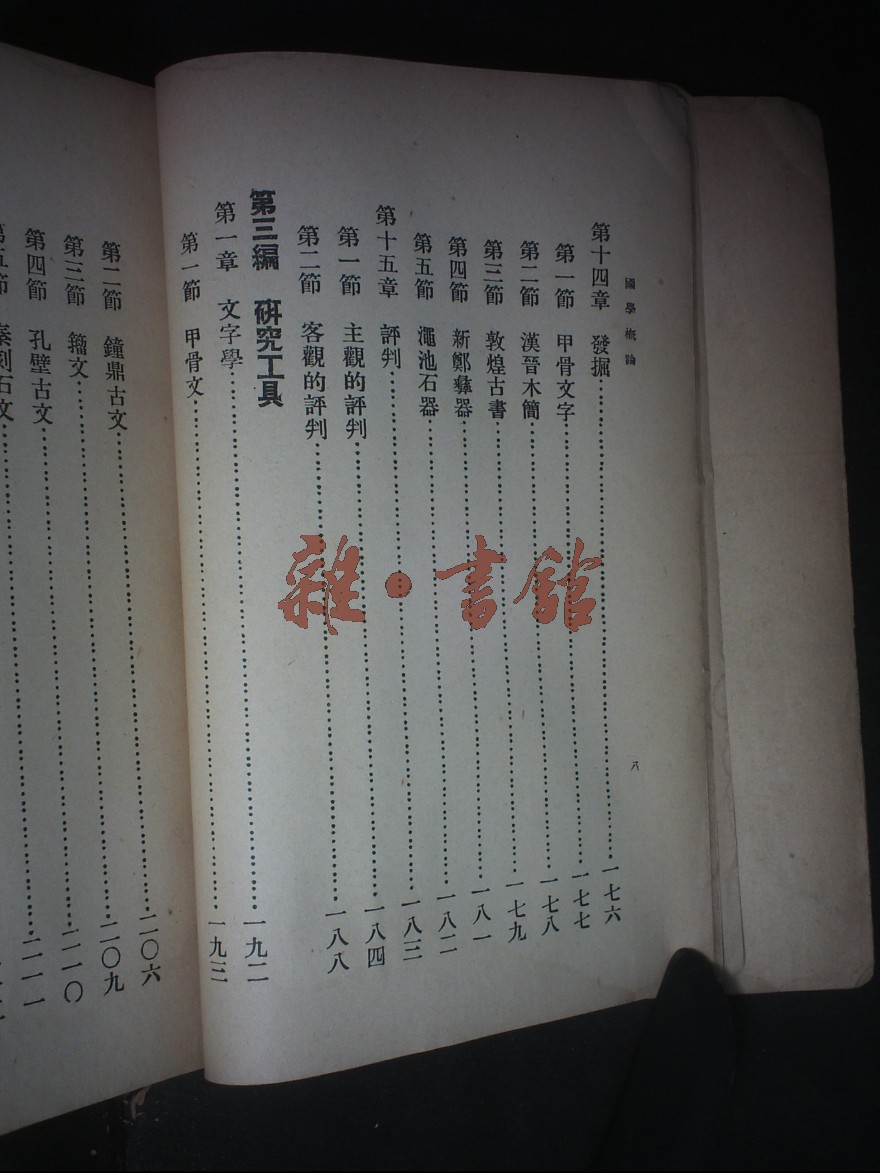 國學概論 八
第十四章 發掘……一七六
第一節 甲骨文字……一七七
第二節 漢晉木簡……一七八
第三節 敦煌古書……一七九
第四節 新鄭彝器……一八一
第五節 澠池石器……一八二
第十五章 評判……一八三
第一節 主觀的評判……一八四
第二節 客觀的評判……一八八
第三編 研究工具
第一章 文字學……一九二
第一節 甲骨文……一九三
第二節 鐘鼎古文……二〇六
第三節 籀文……二〇九
第四節 孔壁古文……二一〇
第五節 秦刻石文……二一一
雜·書館